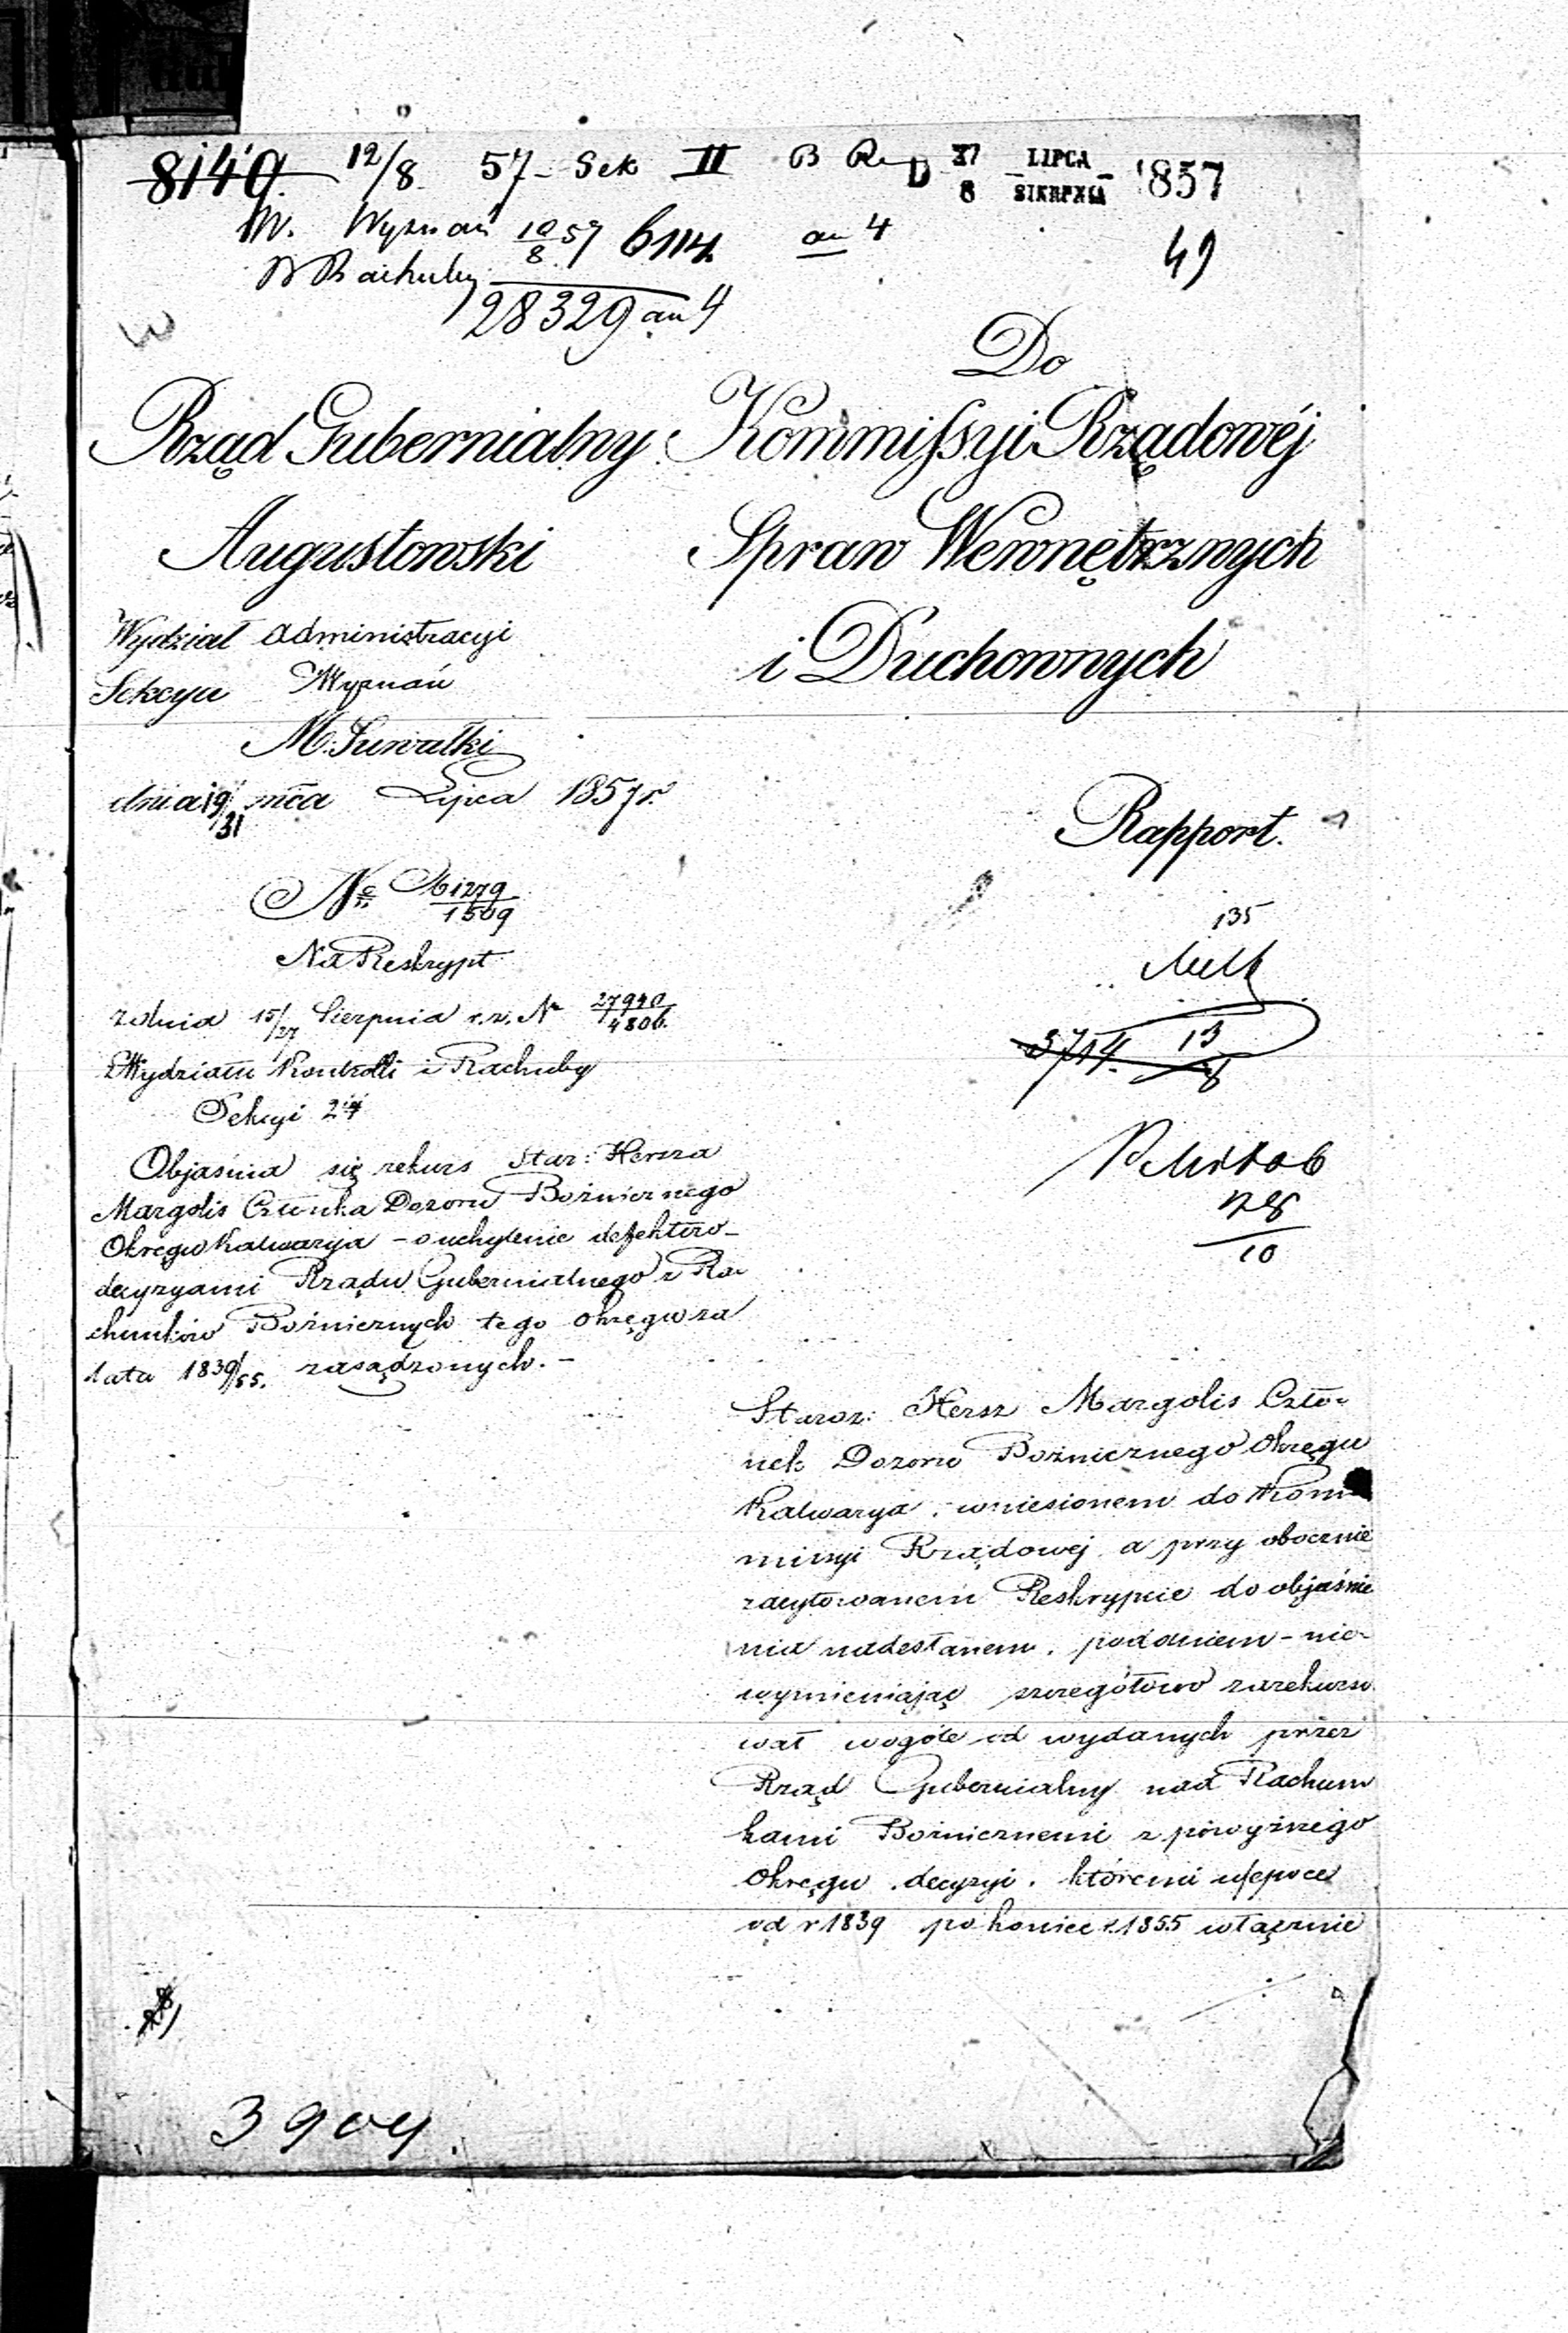 8140 12/8 57 - Sek II B Re D 27/8 LIPCA/SIERPNIA 1857
W. Wyznań 10/8 57 6114 an 4
49
B Rachuby
28329 an 4
Do
Rząd Gubernialny
Augustowski
Kommissyi Rządowéj
Spraw Wewnętrznych
i Duchownych
Wydział Administracyi
Sekcya Wyznań
M. Suwałki
dnia 19/31 mca Lipca 1857 r.
Rapport.
No 61279/1509
Na Reskrypt
z dnia 15/27 Sierpnia r.z. N 27940/4806.
z Wydziału Kontrolli i Rachuby
Sekcyi 2éj
135
3714. 13/8
28/10
Objaśnia się rekurs Star: Hersza
Margolis Członka Dozoru Bożnicznego
Okręgu Kalwarya - o uchylenie defektów
decyzyami Rządu Gubernialnego z Ra-
chunków Bożnicznych tego okręgu za
lata 1839/55. zasądzonych. -
Staroz: Hersz Margolis Czło-
nek Dozoru Bożnicznego Okręgu
Kalwarya, wniesionem do Kom
missyi Rządowej a przy obocznie
zacytowanem Reskrypcie do objaśnie
nia nadesłanem, podaniem - nie-
wymieniając szczegółowo zarekurso
wał wogóle od wydanych przez
Rząd Gubernialny nad Rachun
kami Bożnicznemi z powyższego
Okręgu decyzyi, któremi w epoce
od r 1839 po koniec r. 1855 włącznie
3904.